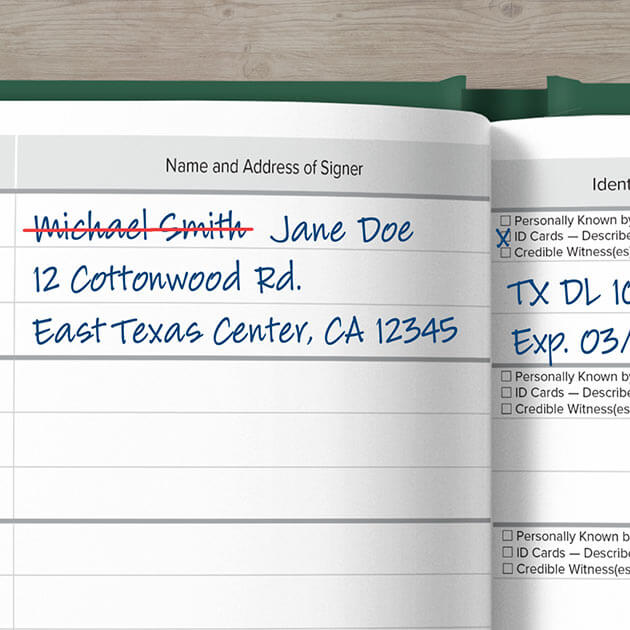 Name and Address of Signer
Michael Smith Jane Doe
12 Cottonwood Rd.
East Texas Center, CA 12345
Ident
Personally Known by
X ID Cards — Describe
Credible Witness(es
TX DL 10
Exp. 03/
Personally Known by
ID Cards — Describe
Credible Witness(es
Personally Known by
ID Cards — Describe
Credible Witness(es